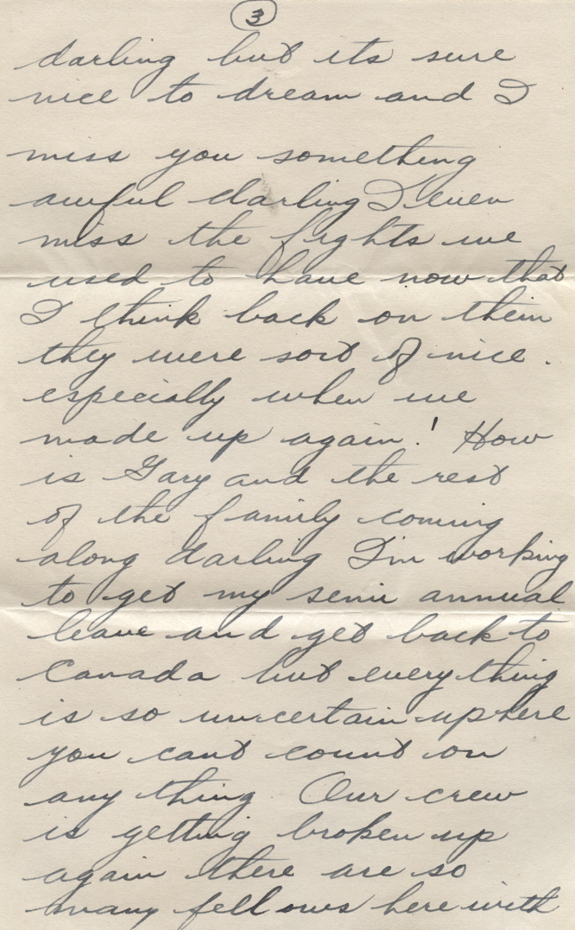 3
darling but its sure
nice to dream and I
miss you something
awful darling I even
miss the fights we
used to have now that
I think back on them
they were sort of nice.
especially when we
made up again! How
is Gary and the rest
of the family coming
along darling I'm working
to get my semi annual
leave and get back to
Canada but every thing
is so uncertain up here
you cant count on
any thing. Our crew
is getting broken up
again there are so
many fellows here with